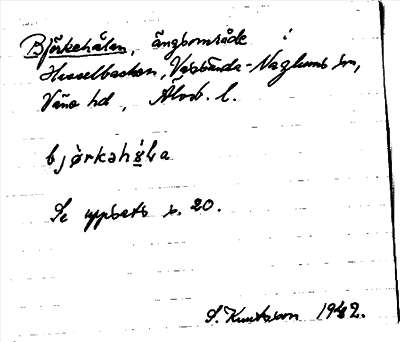 Björkehålan, ängsområde i
Hesselbacken, Västbonda-Naglums sn,
Väne hd, Älvsb. l.
bjørkəhåla
Se uppsats s. 20.
S. Knutsson 1942.